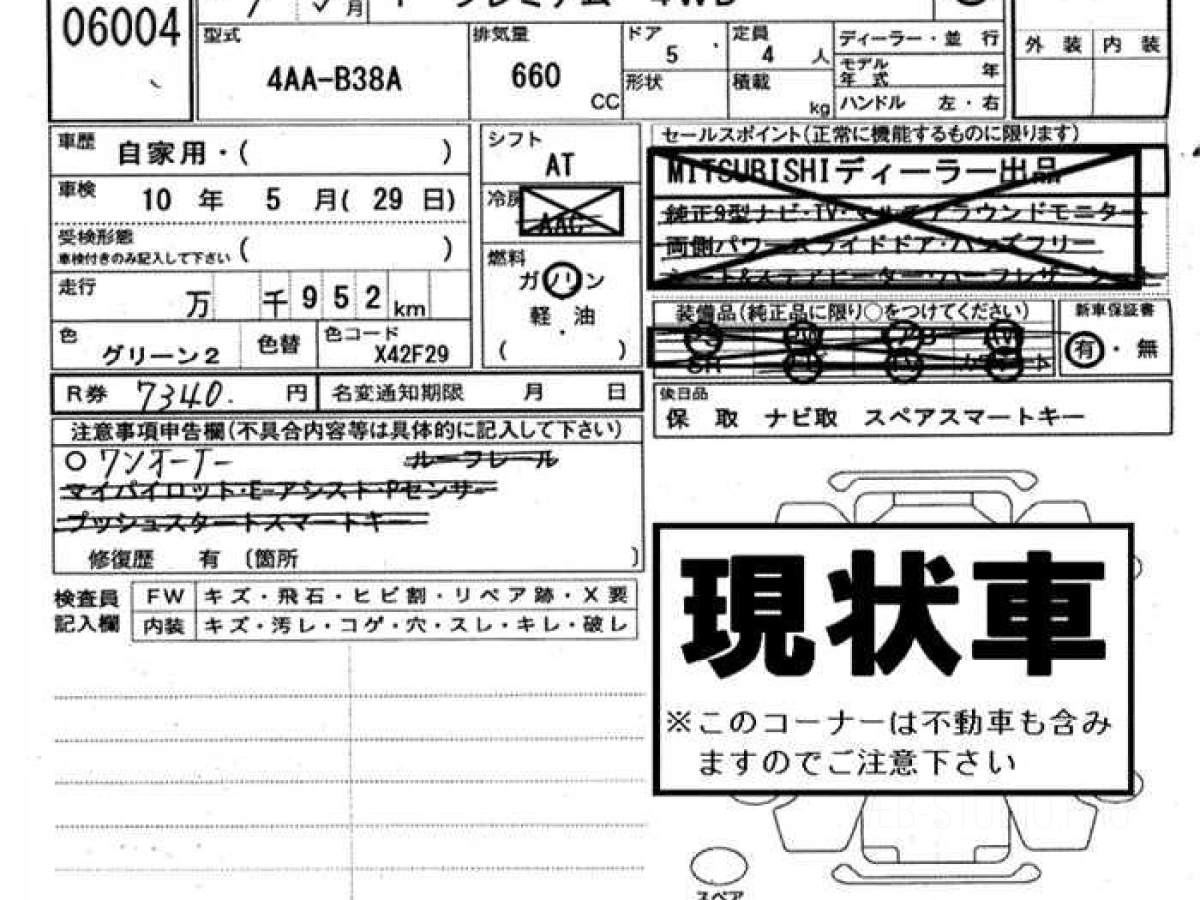 06004
月
プレミアム 4WD
型式
4AA-B38A
排気量
660
CC
ドア
5
定員
4 人
形状
積載
kg
ディーラー・並行
モデル年式 年
ハンドル 左・右
外装 内装
車歴 自家用・( )
車検 10 年 5 月( 29 日)
受検形態
車検付きのみ記入して下さい ( )
走行 万 千 952 km
色 グリーン2
色替
色コード X42F29
シフト
AT
冷房
AAC
燃料
ガソリン
軽・油
( )
セールスポイント(正常に機能するものに限ります)
MITSUBISHIディーラー出品
純正9型ナビ・TV・マルチアラウンドモニター
両側パワースライドドア・ハンズフリー
シート&ステアヒーター・ハーフレザーシート
装備品(純正品に限り○をつけてください)
PS PW
SR
新車保証書
有・無
R券 7340. 円
名変通知期限 月 日
後日品
保 取 ナビ取 スペアスマートキー
注意事項申告欄(不具合内容等は具体的に記入して下さい)
○ワンオーナー ルーフレール
マイパイロット・E-アシスト・Pセンサー
プッシュスタートスマートキー
修復歴 有 (箇所 )
検査員記入欄
FW キズ・飛石・ヒビ割・リペア跡・X要
内装 キズ・汚レ・コゲ・穴・スレ・キレ・破レ
現状車
※このコーナーは不動車も含み
ますのでご注意下さい
スペア